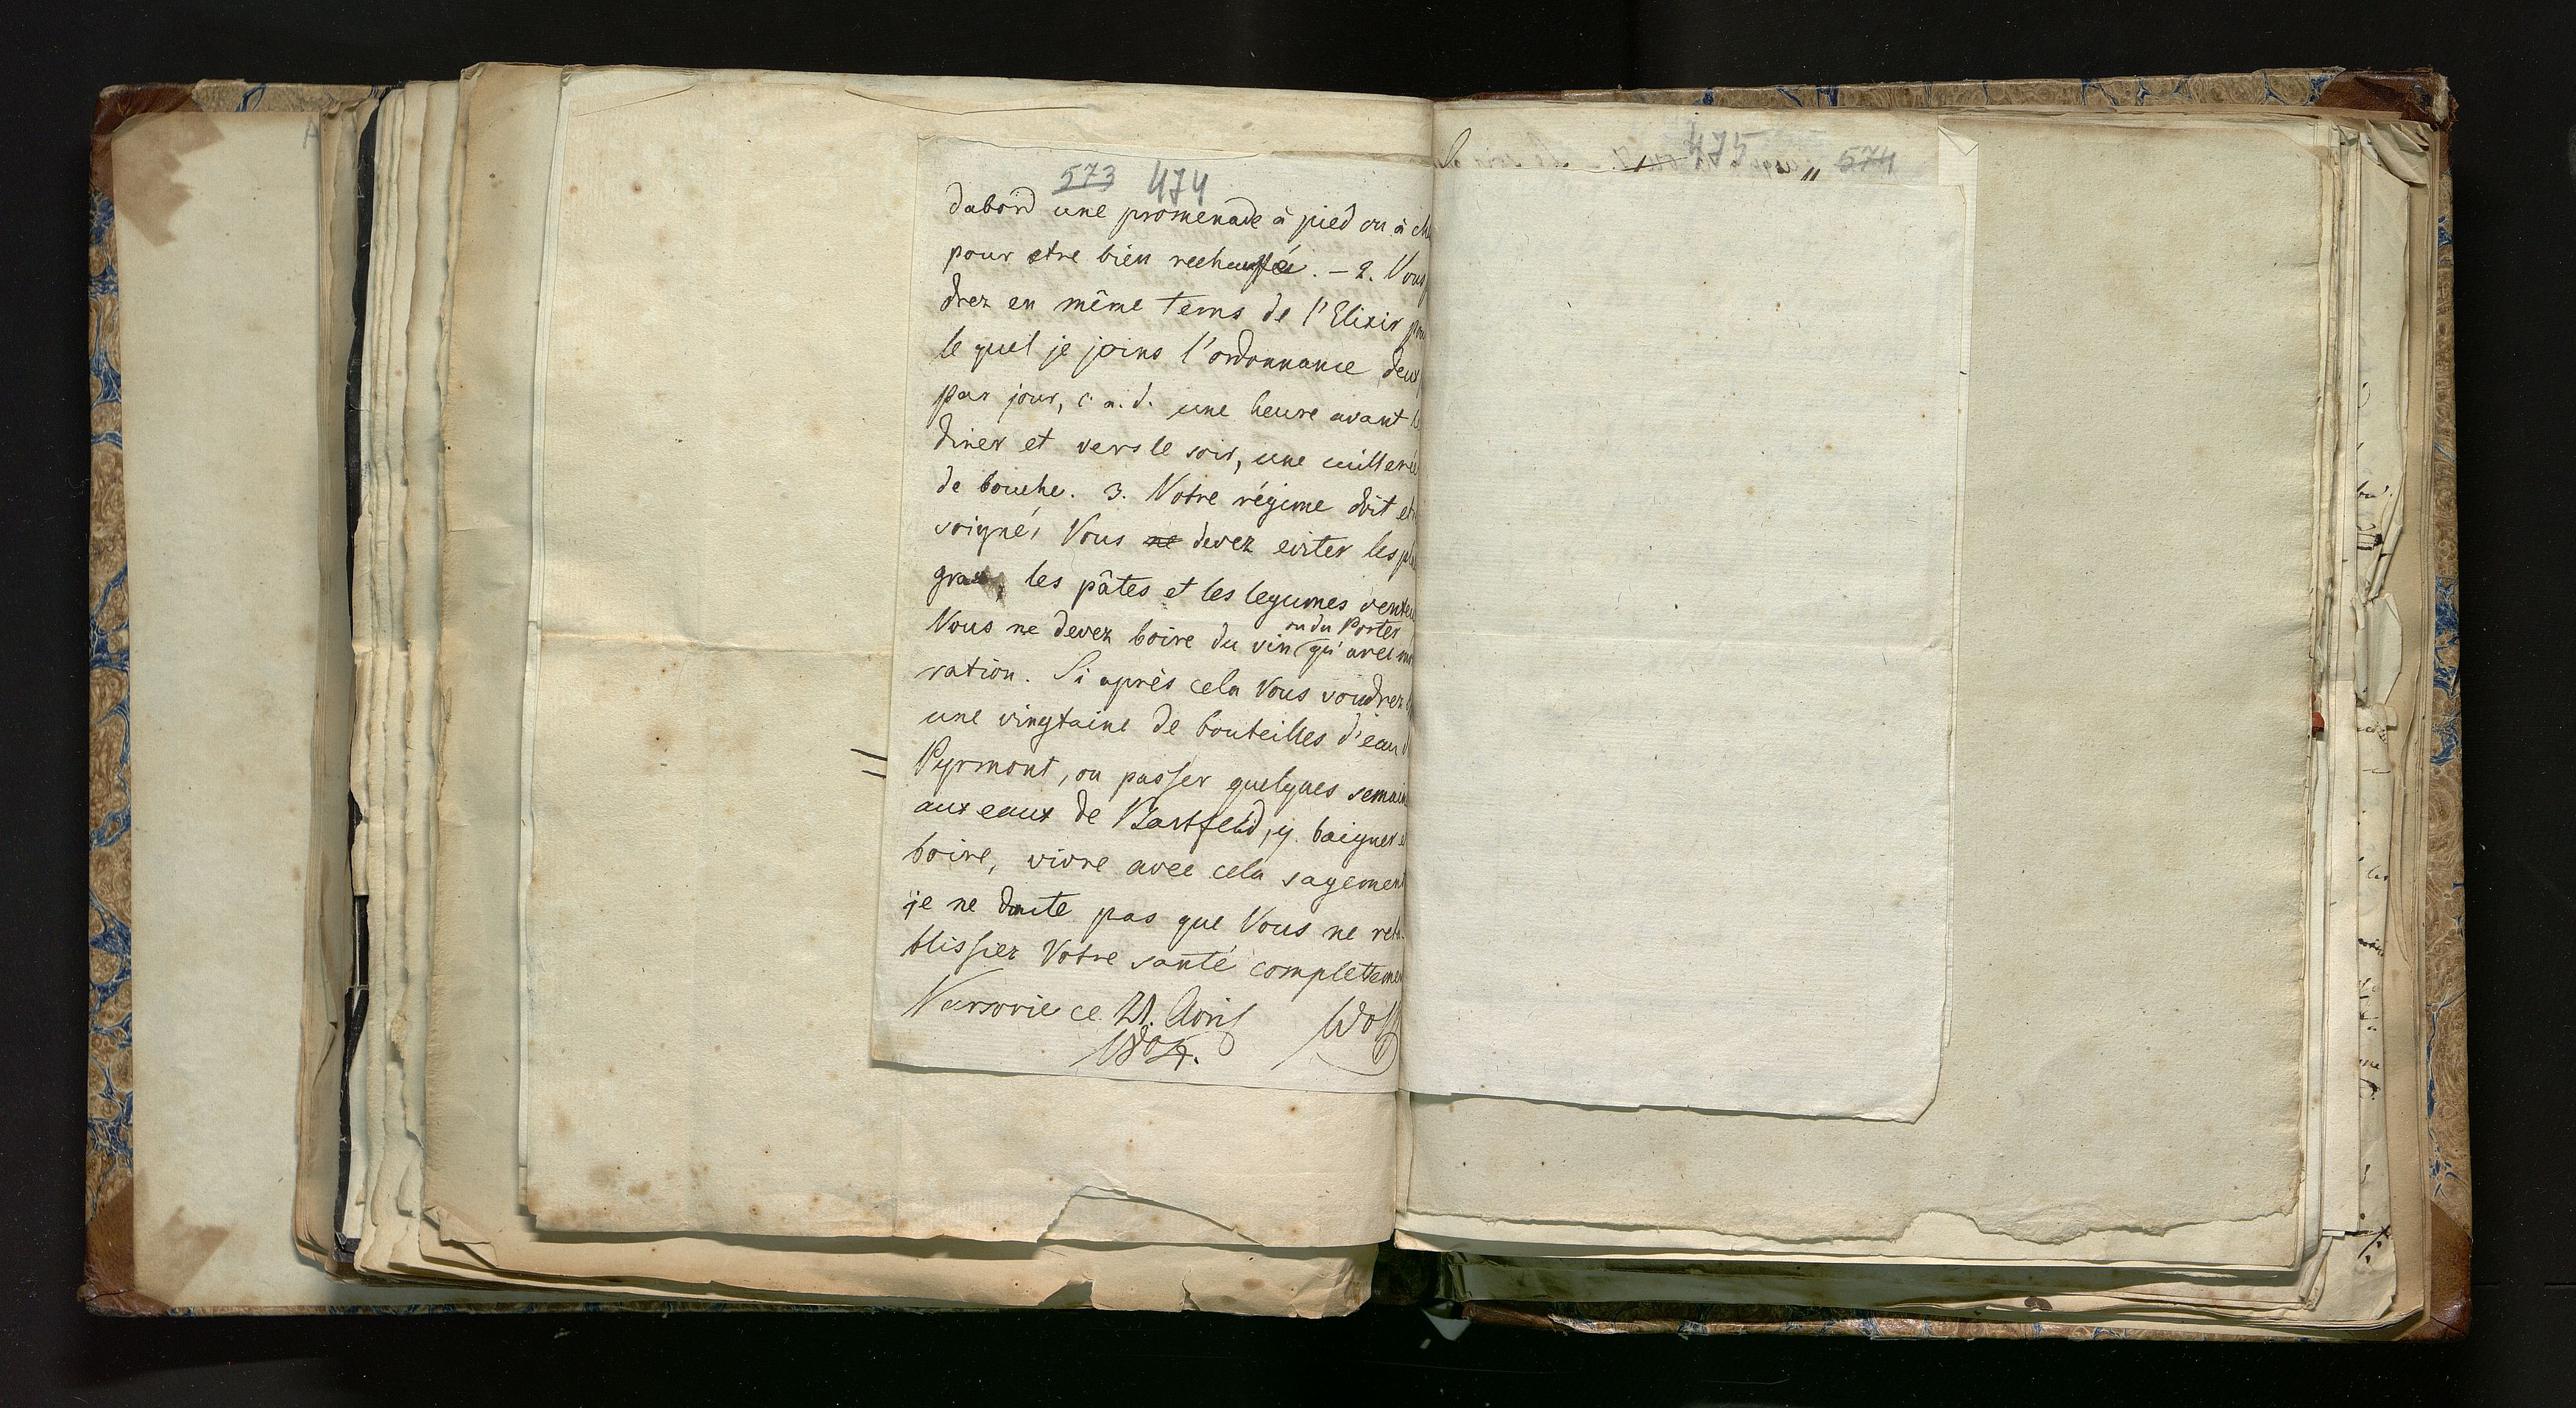 573 474
dabord une promenade à pied ou à ch
pour etre bien rechauffés. – 2. Vous
drez en même tems de l'Elixir pou
le quel je joins l'ordonnance deux
par jour, c. a. d. une heure avant le
diner et vers le soir, une cuillerée
de bouche. 3. Votre régime doit et
soigné, Vous ne devez eviter les pl
gras, les pâtes et les legumes venteu
ou du Porter
Vous ne devez boire du vin qu'avec mo
ration. Si après cela Vous voudrez
une vingtaine de bouteilles d'eau d
Pyrmont, ou passer quelques semain
aux eaux de Bartfeld, y baigner e
boire, vivre avec cela sagement
je ne doute pas que Vous ne reta-
blissiez Votre santé complettemen
Varsovie ce 21. Avril Wolff
1804.
475 574